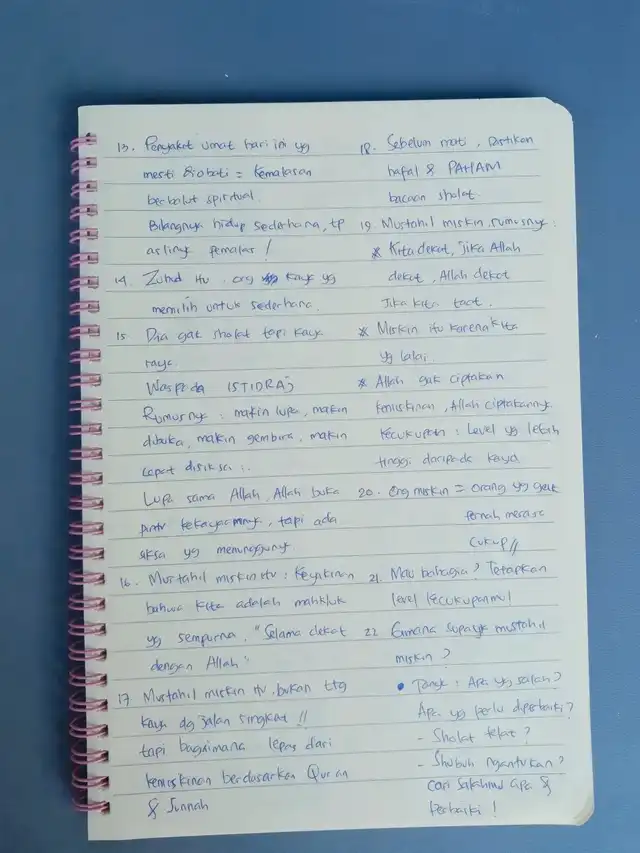 13. Penyakit umat hari ini yg
mesti diobati = kemalasan
berbalut spiritual.
Bilangnya hidup sederhana, tp
aslinya pemalas !
14. Zuhud itu org kaya yg
memilih untuk sederhana.
15 Dia gak sholat tapi kaya
raya.
Waspada ISTIDRAJ
Rumusnya : makin lupa, makin
dibuka, makin gembira, makin
cepat disiksa :.
Lupa sama Allah, Allah buka
pintu kekayaannya, tapi ada
siksa yg menunggunya
16. Mustahil miskin itu : Keyakinan
bahwa kita adalah mahkluk
yg sempurna. "Selama dekat
dengan Allah"
17 Mustahil miskin itu bukan ttg
kaya dg jalan singkat !!
tapi bagaimana lepas dari
kemiskinan berdasarkan Quran
& Sunnah
18. Sebelum mati, pastikan
hapal & PAHAM
bacaan sholat.
19. Mustahil miskin, rumusnya :
* Kita dekat, jika Allah
dekat, Allah dekat
Jika kita taat.
* Miskin itu karena kita
yg lalai
* Allah gak ciptakan
kemiskinan, Allah ciptakannya
kecukupan : Level yg lebih
tinggi daripada kaya
20. Org miskin = orang yg gak
pernah merasa
cukup //
21. Mau bahagia? Tetapkan
level kecukupanmu!
22 Gimana supaya mustahil
miskin ?
• Tanya : Apa yg salah?
Apa yg perlu diperbaiki?
- Shalat telat ?
- Shubuh ngantukan?
cari salahmu apa &
Perbaiki !